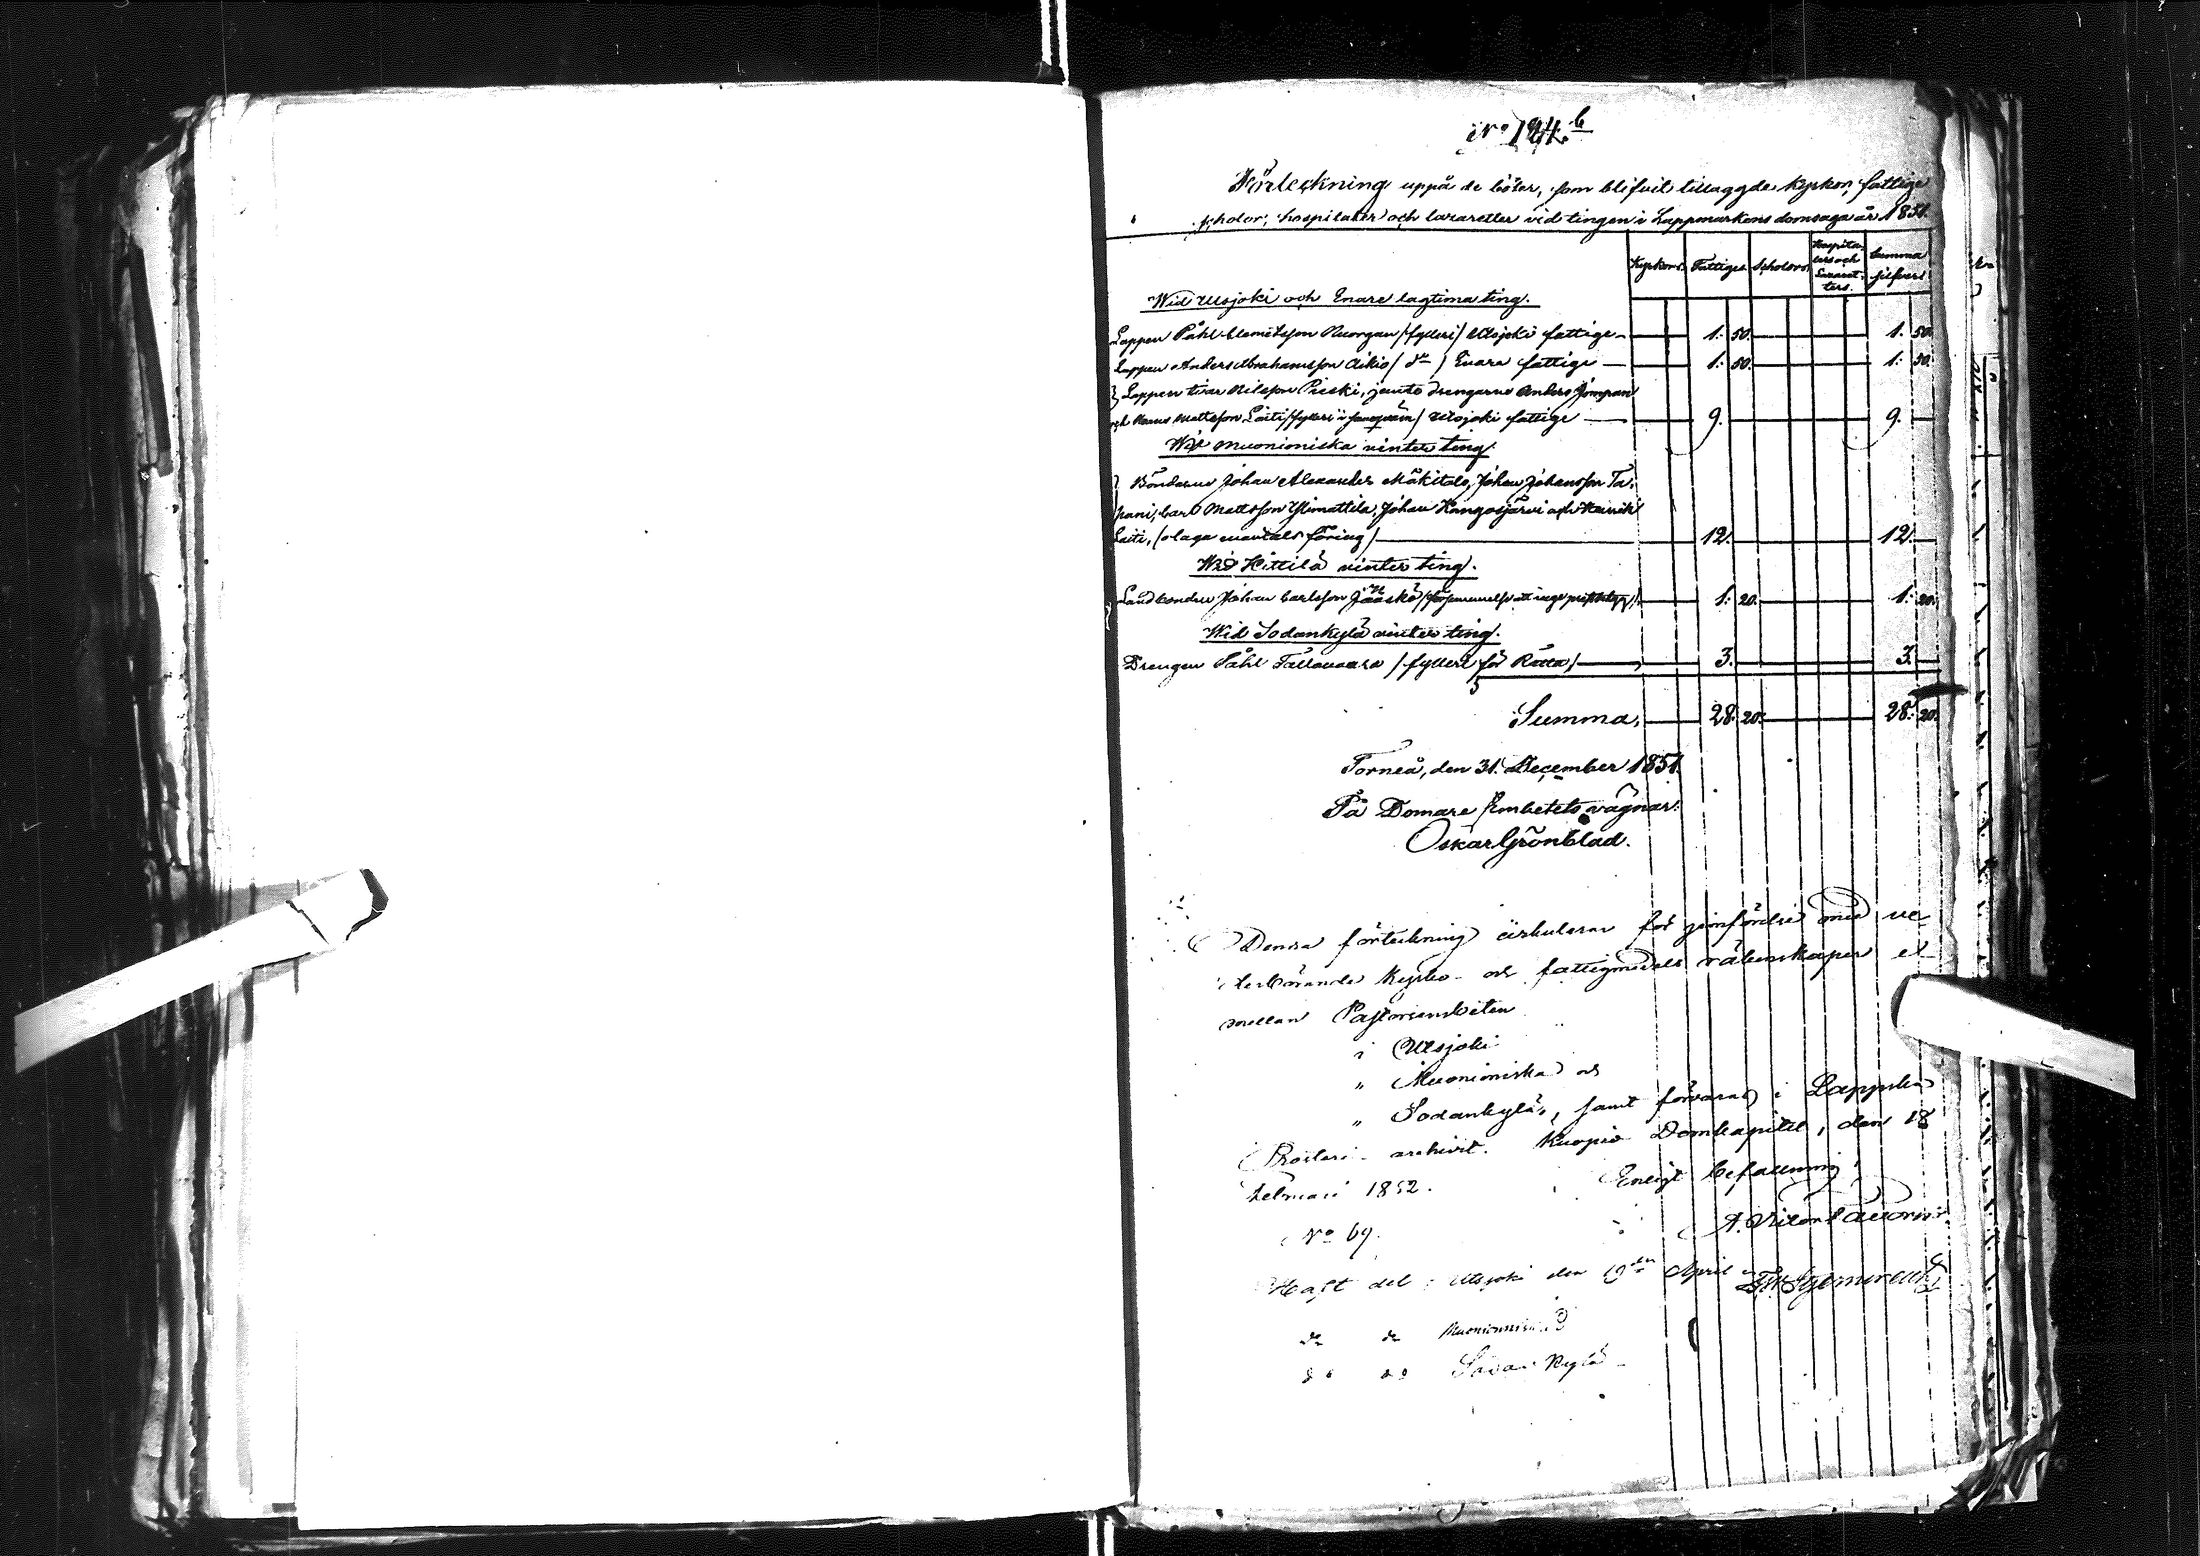 No 124. b
Förteckning uppå de böter, som blifvit tillaggde kyrkor, fattige
scholor, hospitaler och lazaretter vid tingen i Lappmarkens domsaga år 1851.
Kyrkors. Fattiges. Scholors. Hospitalers och Lazaretters. Summa silfver.
Wid Utsjoki och Enare lagtima ting.
Lappen Påhl Clemitsson Nuorgan /fylleri/ Utsjoki fattige 1: 50. 1: 50.
Lappen Anders Abrahamsson Aikio / do / Enare fattige 1: 50. 1: 50.
Lappen Isac Nilsson Pieski, jemte drengarne Anders Jompan
och Hans Mattsson Laiti /fylleri / Utsjoki fattige 9. 9.
Wid Muonioniska vinter ting.
Bönderne Johan Alexander Mäkitalo, Johan Johansson Ta-
pani, Carl Mattsson Ylimattila, Johan Kangosjärvi och Henrik
Laiti, /olaga /. 12. 12.
Wid Kittilä vinter ting.
Landbonden Johan Carlsson Jääskö 1: 20. 1: 20.
Wid Sodankylä vinter ting.
Drengen Påhl Tallavaara /fylleri för Rätta/ 3. 3.
Summa, 28: 20. 28: 20.
Torneå, den 31. December 1851.
På Domare Embetets vägnar:
Oskar Grönblad.
Denna förteckning cirkulerar för jemförelse med ve-
derbörande kyrko- och fattigmedels räkenskaper e-
mellan Pastorsembeten
i Utsjoki
" Muonioniska och
" Sodankylä, samt förvaras i Lappska
Prosteri-archivet. Kuopio Domkapitel, den 18
Februari 1852. Enligt befallning,
No 69.
Haft del; Utsjoki den 19de April
do do Muonionniska
do do Sodankylä